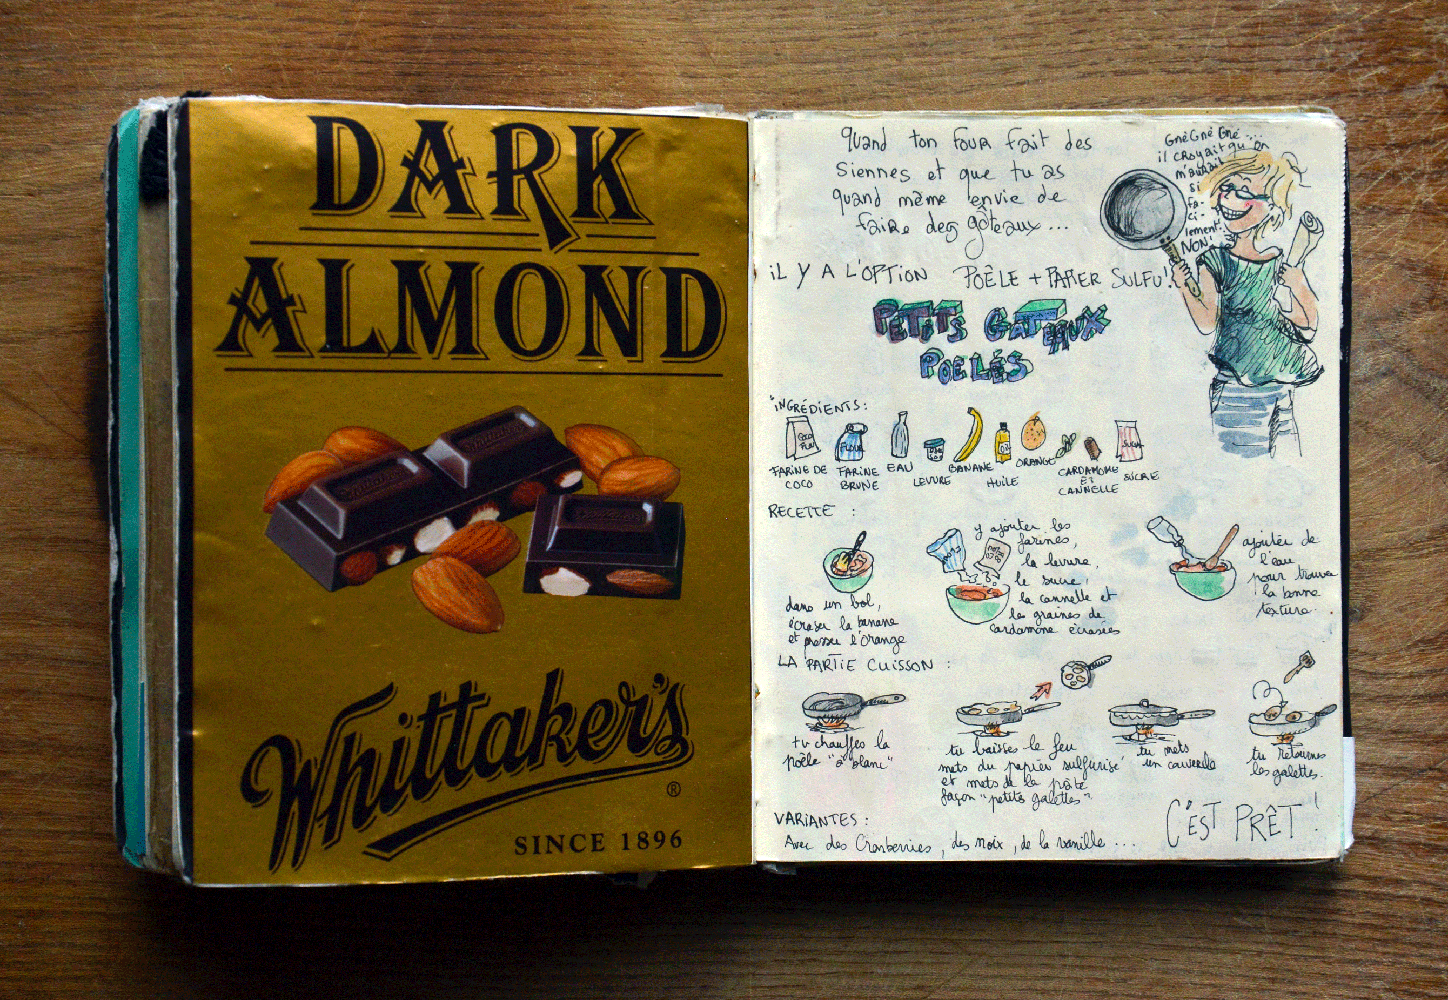 DARK
ALMOND
Whittaker's
®
SINCE 1896
quand ton four fait des
siennes et que tu as
quand même envie de
faire des gâteaux...
GnéGné Gné...
il croyait qu'on
m'aurait
si
fa-
ci-
lement!
NON!
iL Y A L'OPTION POÊLE + PAPIER SULFU!
PETITS GATEAUX
POELÉS
INGRÉDIENTS:
FARINE DE
COCO
FARINE
BRUNE
EAU
LEVURE
BANANE
HUILE
ORANGE
CARDAMOME
ET
CANNELLE
SUCRE
RECETTE :
dans un bol,
écraser la banane
et presser l'orange
y ajouter les
farines,
la levure,
le sucre,
la cannelle et
les graines de
cardamome écrasées
ajouter de
l'eau
pour trouver
la bonne
texture.
LA PARTIE CUISSON :
tu chauffes la
poêle "à blanc"
tu baisses le feu
mets du papier sulfurisé
et mets de la pâte
façon "petits galettes".
tu mets
un couvercle
tu retournes
les galettes.
VARIANTES :
Avec des Cranberries, des noix, de la vanille ...
C'EST PRÊT !